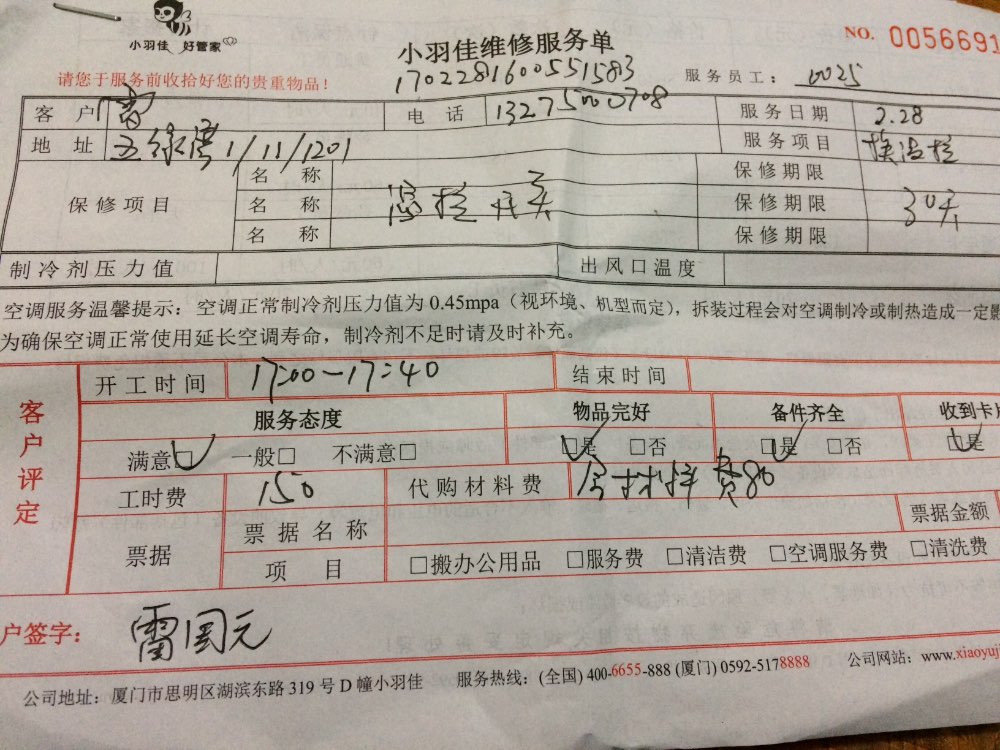 小羽佳 好管家
小羽佳维修服务单
NO. 0056691
请您于服务前收拾好您的贵重物品！
1702281600551583
服务员工： 0025
客 户 雷 电 话 13275000708 服务日期 2.28
地 址 五缘湾1/11/1201 服务项目 换温控
保修项目 名 称 保修期限
名 称 温控开关 保修期限 30天
名 称 保修期限
制冷剂压力值 出风口温度
空调服务温馨提示：空调正常制冷剂压力值为 0.45mpa（视环境、机型而定），拆装过程会对空调制冷或制热造成一定影
为确保空调正常使用延长空调寿命，制冷剂不足时请及时补充。
客户评定
开工时间 17:00-17:40 结束时间
服务态度 物品完好 备件齐全 收到卡
满意□ 一般□ 不满意□ □是 □否 □是 □否 □是
工时费 150 代购材料费 含材料费80
票据 票据名称 票据金额
项 目 □搬办公用品 □服务费 □清洁费 □空调服务费 □清洗费
户签字： 雷国元
公司地址：厦门市思明区湖滨东路 319 号 D 幢小羽佳 服务热线：(全国) 400-6655-888 (厦门) 0592-5178888 公司网站：www.xiaoyuj